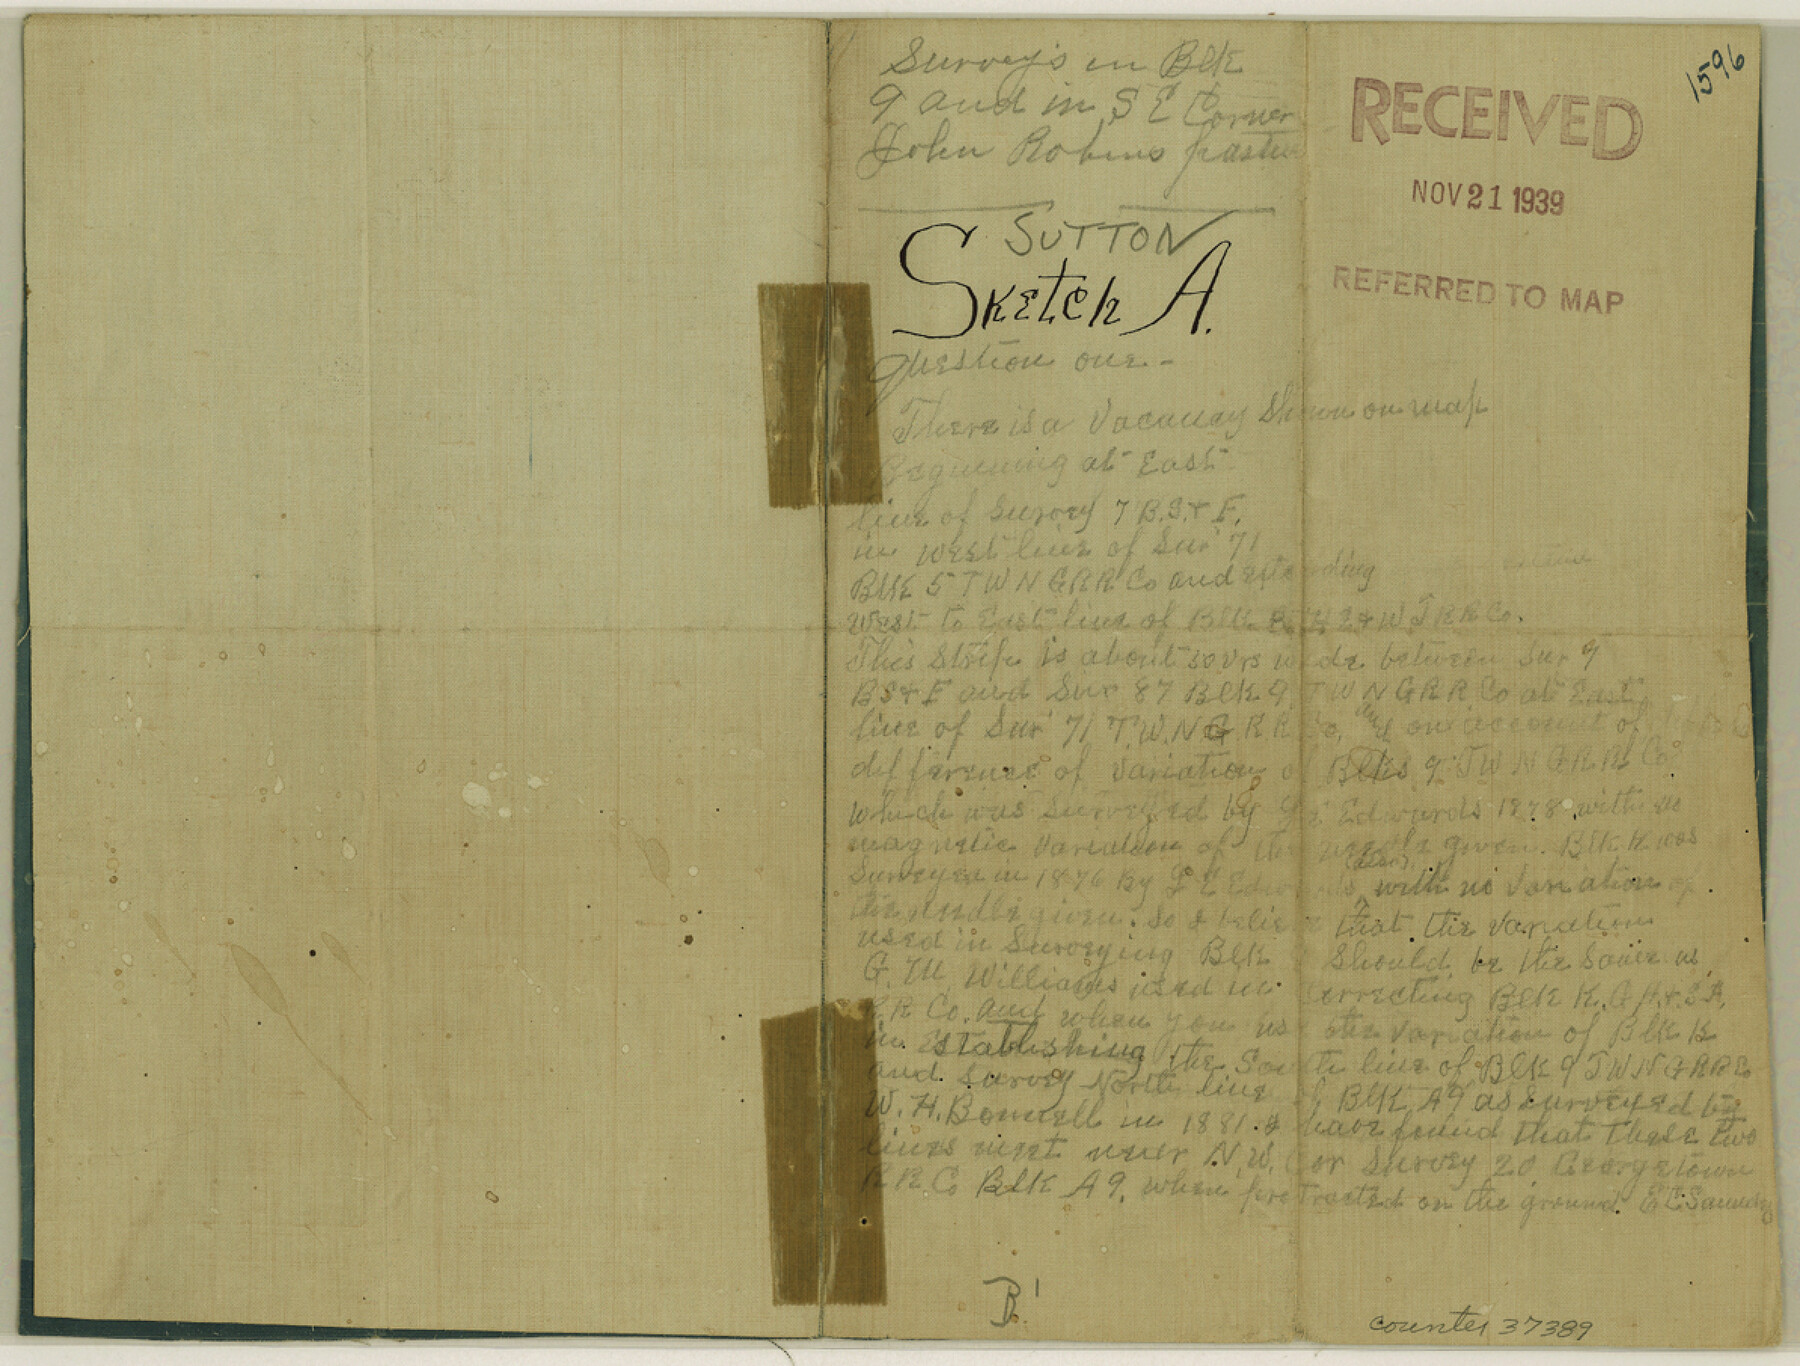 Surveys in Blk
9 and in S E Corner
John Robins pasture
SUTTON
Sketch A.
Question one -
There is a Vacancy Shown on map
Beginning at East
line of Survey 7 B.S.& F.
in west line of Sur 71
Blk 5 T W N G R R Co and extending
West to East line of Blk B H E & W T R R Co.
This Strip is about 50 vrs wide between Sur 9
B S & F and Sur 87 Blk 9 T W N G R R Co at East
line of Sur 71 T.W.N G R.R Co, and on account of
difference of Variation of Blks 9 T W N G R R Co
which was Surveyed by Edwards 1878 with no
magnetic Variation of the needle given. Blk K was
Surveyed in 1876 By L E Edwards (also), with no Variation of
the needle given. So I believe that the Variation
used in Surveying Blk Should be the Same as
G. M. Williams used in Correcting Blk K. G H. & S A.
R R Co. and when you use the variation of Blk K
in Establishing the South line of Blk 9 T W N G R R Co
and Survey North line of Blk A9 as Surveyed by
W. H. Bonnell in 1881. I have found that these two
lines meet near N.W. Cor Survey 20 Georgetown
R R Co Blk A 9. when protracted on the ground. E C Saunders
B'
1596
RECEIVED
NOV 21 1939
REFERRED TO MAP
counter 37389